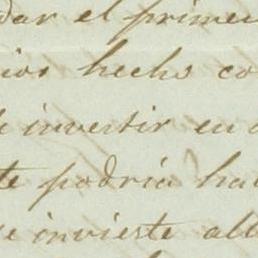 dar el primer
ior hecho co
e invertir en
te podria ha
se invierte all